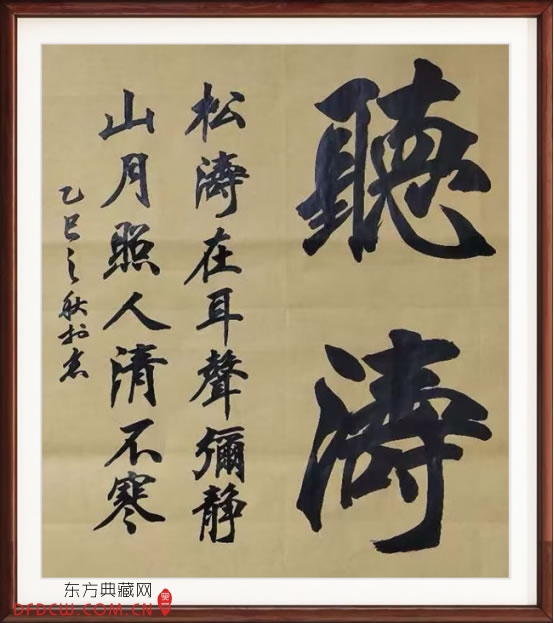 聽濤
松濤在耳聲彌静
山月照人清不寒
乙巳之秋於京
东方典藏网
DFDCW.COM.CN